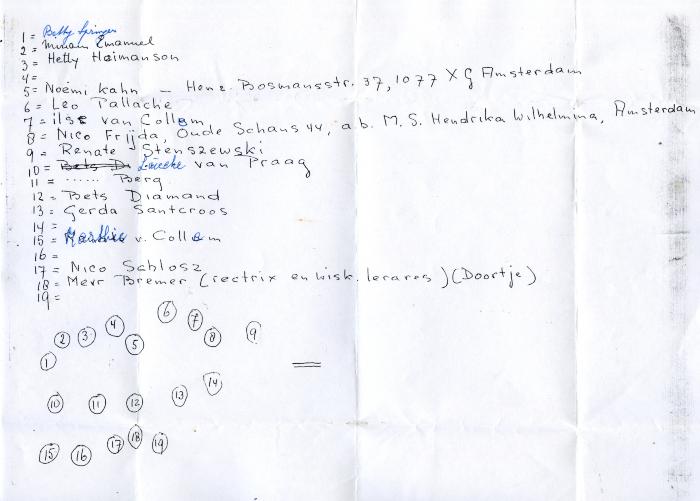 1 = Betty Springer
2 = Miriam Emanuel
3 = Hetty Haimanson
4 =
5 = Noëmi Kahn - Hone. Bosmansstr. 37, 1077 XG Amsterdam
6 = Leo Pallache
7 = ilse van Collem
8 = Nico Frijda, Oude Schans 44, a.b. M.S. Hendrika Wilhelmina, Amsterdam
9 = Renate Stenszewski
10 = Bets D van Praag
11 = ...... Berg
12 = Bets Diamand
13 = Gerda Santcroos
14 =
15 = v. Collem
16 =
17 = Nico Schlosz
18 = Mevr Bremer (rectrix en wisk. lerares) (Doortje)
19 =
6 7
2 3 4 5 8 9
1
10 11 12 13 14
15 16 17 18 19